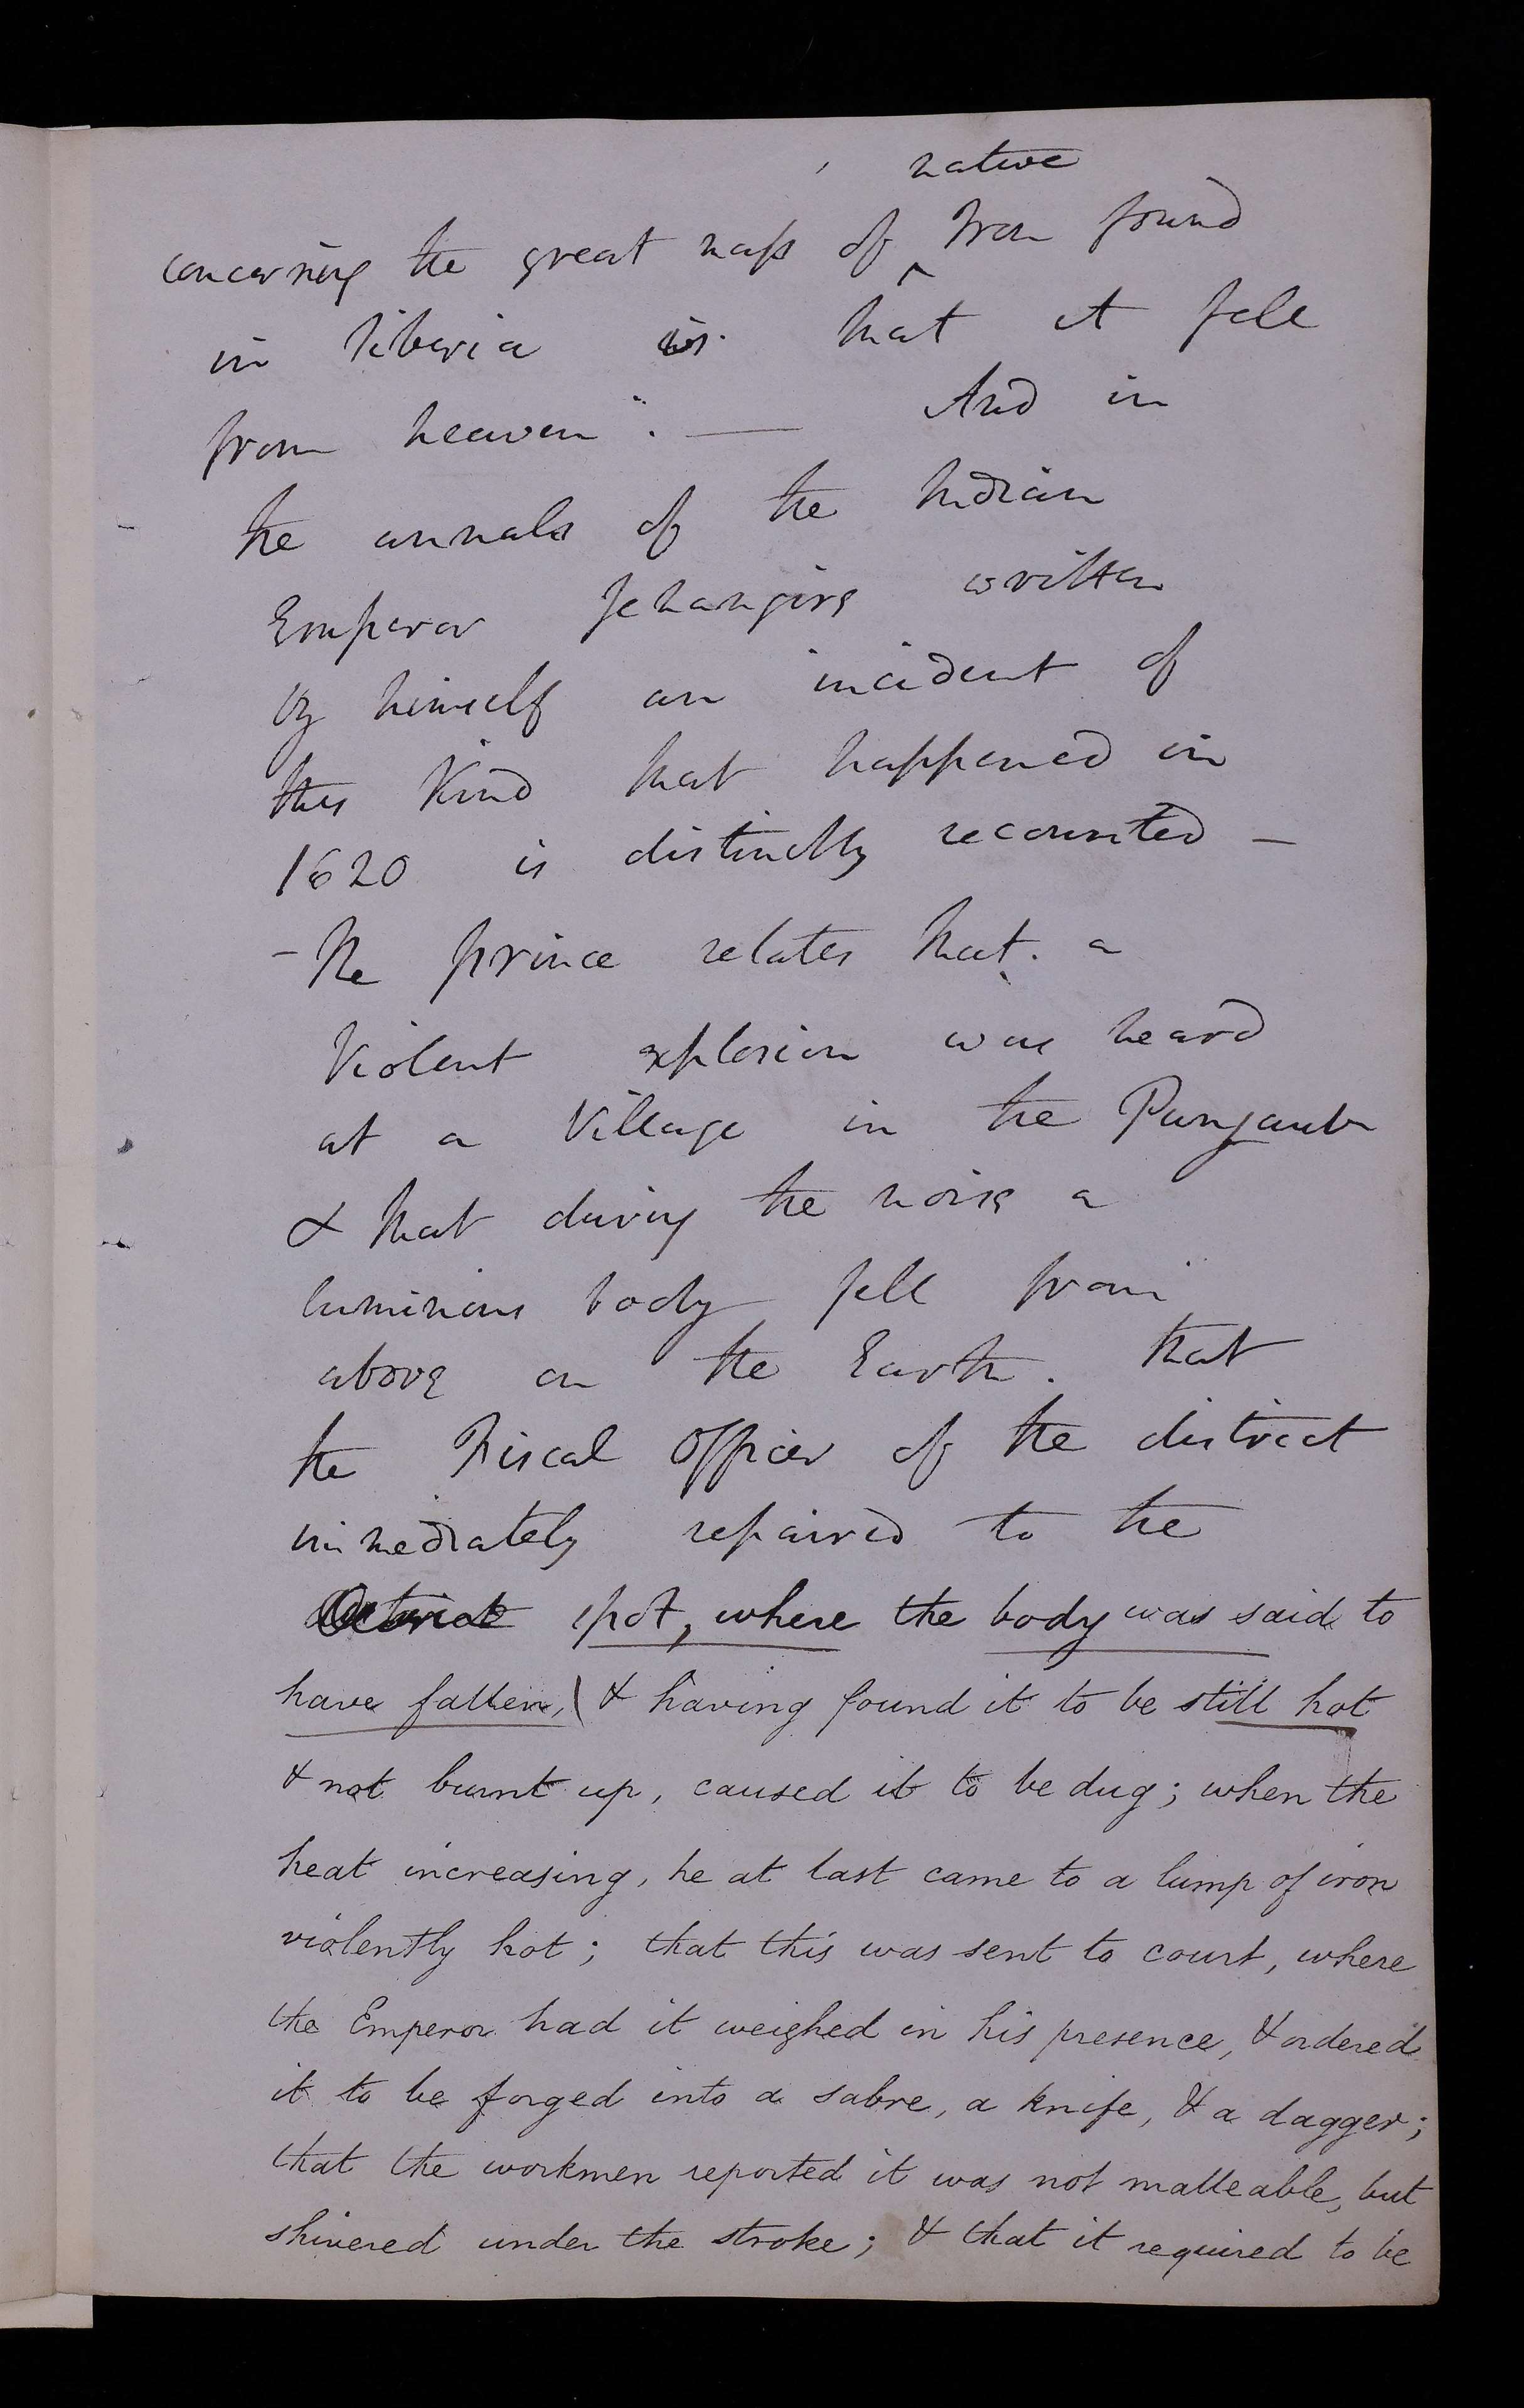 native
concerning the great mass of ^ Iron found
in Siberia is that it fell
from heaven". — And in
the annals of the Indian
Emperor Jehangire written
by himself an incident of
this Kind that happened in
1620 is distinctly recounted —
- The prince relates that a
Violent explosion was heard
at a Village in the Punjaub
& that during the noise a
luminous body fell from
above on the Earth. that
the Fiscal Officer of the district
immediately repaired to the
spot, where the body was said to
have fallen, & having found it to be still hot
& not burnt up, caused it to be dug; when the
heat increasing, he at last came to a lump of iron
violently hot; that this was sent to court, where
the Emperor had it weighed in his presence, & ordered
it to be forged into a sabre, a knife, & a dagger;
that the workmen reported it was not malleable, but
shivered under the stroke; & that it required to be